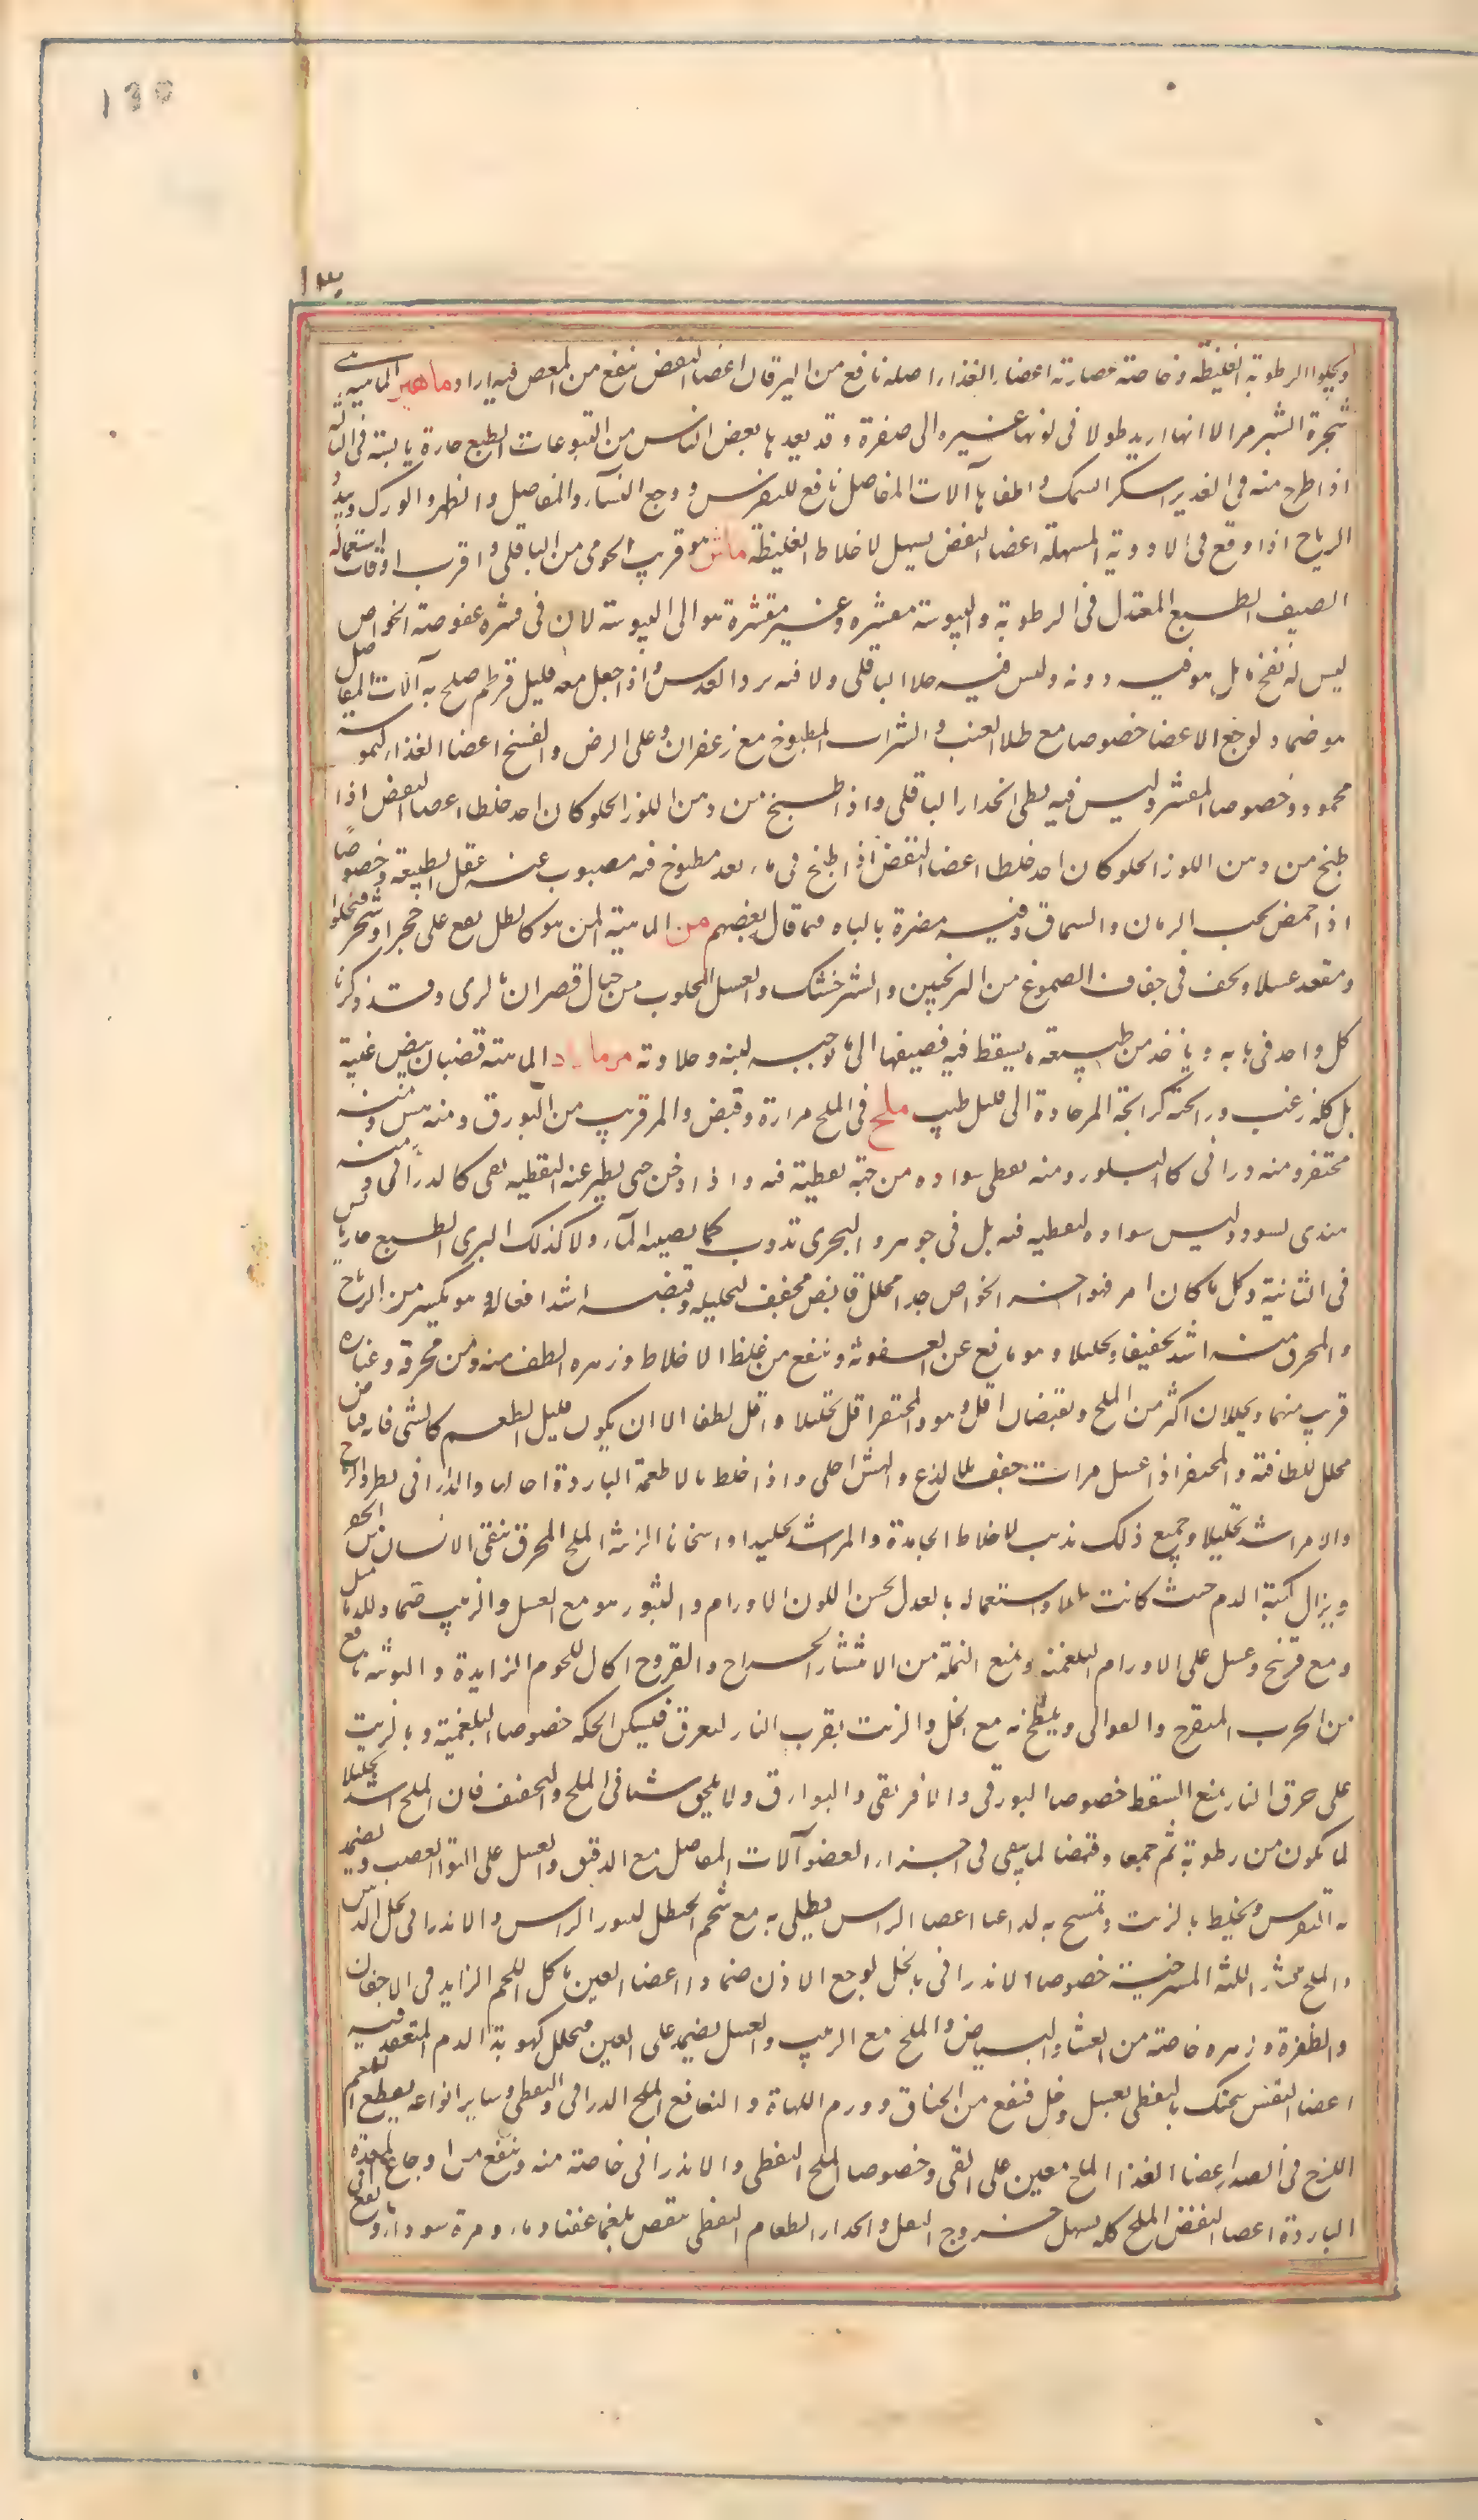 130
١٣٠
ويجلوا الرطوبة الغليظة وخاصته عصارته اعضاء الغذاء اصله نافع من اليرقان اعضا النفض ينفع من المغص فيه ايراد ماهي الماهية
شجرة الشبر مر الا انها اريد طولا فى لونها غبره الى صفرة وقد يعدها بعض الناس من اليتوعات الطبع حارة يابسة فى الثالثة
اذا طرح منه فى الغدير اسكر السمك واطفاها آلات المفاصل نافع للنقرس ووجع النساء والمفاصل والظهر والورك
الرياح اذا وقع فى الادوية المسهلة اعضا النفض يسهل لاخلاط الغليظة ماش هو قريب الجوهر من الباقلى واقرب اوقات استعماله
الصيف الطبع المعتدل فى الرطوبة واليبوسة مقشره وغير مقشرة هو الى اليبوسة لان فى قشره عفوصة الخواص
ليس له نفخ بل هو فيه دونه وليس فيه جلا الباقلى ولا فيه برد العدس واذا جعل معه قليل قرطم صلح به آلات المفاصل
هو ضماد لوجع الاعضا خصوصا مع طلا العنب والشراب المطبوخ مع زعفران وعلى الرض والفسخ اعضا الغذا كيموسه
محمود وخصوصا المقشر وليس فيه بطى انحدار الباقلى واذا طبخ من دهن اللوز الحلو كان احد خلطا اعصا النفض اذا
طبخ من دهن اللوز الحلو كان احد خلطا اعضا النفض اذا طبخ فى ماء بعد مطبوخ فيه مصبوب عنه عقل الطبيعة وخصوصًا
اذا حمض بحب الرمان والسماق وفيه مضرة بالباه فيما قال بعضهم من الماهية المن هو كالطل يقع على حجر او شجر فيحلوا
وينعقد عسلا ويجف فى جفاف الصموغ من الترنجبين والشيرخشك والعسل المجلوب من جبال قصران بالرى وقد ذكرنا
كل واحد فى بابه وياخذ من طبيعة ما يسقط فيه فيضيفها الى ما يوجبه لينه وحلاوته مرماد الماهية قضبان بيض غبية
بل كله زغب ورائحته كرائحة المر حادة الى قليل طيب ملح فى الملح مرارة وقبض والمر قريب من البورق ومنه هش ومنه
محتفر ومنه درانى كالبلور ومنه نفطى سواده من جهة نفطية فيه واذا دخن حتى يطير عنه النفطية بقى كالدرانى ومنه
هندى اسود وليس سواده لنفطيه فيه بل فى جوهره والبحرى تذوب كما يصيبه الماء ولا كذلك البرى الطبع حار يابس
فى الثانية وكل ما كان امر فهو احر الخواص جلا محلل قابض مجفف لتحليله وقبضه اشد افعاله وهو يكسر من الرياح
والمحرق منه اشد تجفيفا وتحليلا وهو مانع عن العفونة وينفع من غلظ الاخلاط وزهره الطف منه ومن محرقه وغباره
قريب منهما ويحللان اكثر من الملح ويقبضان اقل وهو والمحتفر اقل تحليلا واقل لطفا الا ان يكون قليل الطعم كالشى فانه قابض
محلل للطافته والمحتفر اذا غسل مرات جفف بلا لذع والهش احلى واذا خلط بالاطعمة الباردة احالها والذرانى يطرد الرياح
والامر اشد تحليلا وجميع ذلك يذيب لاخلاط الجامدة والمر اشد تحليلا واسخانا الزينة الملح المحرق ينقى الانسان من الحفر
ويزال كمنة الدم حيث كانت طلاء واستعماله بالعدل يحسن اللون الاورام والبثور هو مع العسل والزبيب ضماد للدماميل
ومع فوتنج وعسل على الاورام البلغمية ويمنع النملة من الانتشار الجراح والقروح اكال للحوم الزايدة والتوثة نافع
من الجرب المتقرح والقوابى ويلطخ به مع الخل والزيت بقرب النار ليعرق فيسكن الحكة خصوصا البلغمية وبالزيت
على حرق النار يمنع التنفط خصوصا البورقى والافريقى والبوارق ولا يلحق شيئا فى الملح والتجفيف فان الملح اشد تحليلا
لما يكون من رطوبة ثم جمعا وقبضا لما يبقى فى اجزاء العضو آلات المفاصل مع الدقيق والعسل على التواء العصب ويضمد
به النقرس ويخلط بالزيت وتمسح به للاعيا اعضا الراس يطلى به مع شحم الحنظل لبثور الراس والاندرانى يحلل
والملح يشد اللثة المسترخية خصوصا الاندرانى بالخل لوجع الاذن ضمادا اعضا العين ياكل اللحم الزايد فى الاجفان
والظفرة وزهره خاصته من الغشاء والبياض والملح مع الزبيب والعسل يضمد على العين فيحلل كهوبة الدم المنعقد فيه
اعضا النفس يحنك بالنفطى بعسل وخل فينفع من الخناق وورم اللهاة والنغانغ الملح الدرانى والنفطى وساير انواعه يقطع البلغم
اللزج فى الصدر اعضا الغذا الملح معين على القى وخصوصا الملح النفطى والاندرانى خاصته منه وينفع من اوجاع المعدة
الباردة اعضا النفض الملح كله يسهل خروج الثفل وانحدار الطعام النفطى ينقص بلغما عفنا وماء ومرة سوداء